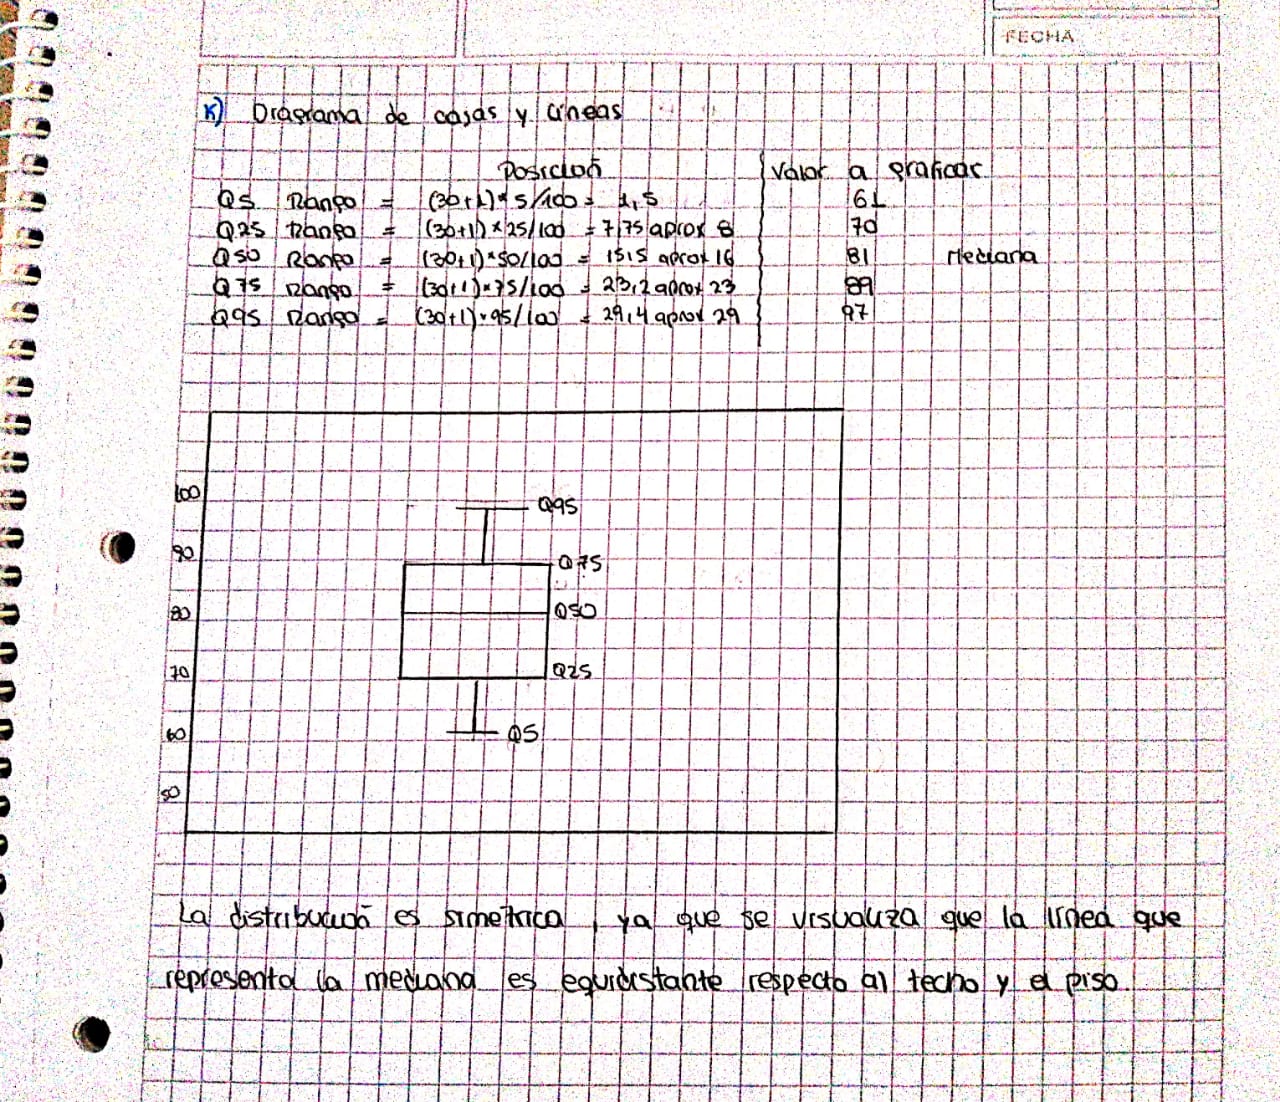 FECHA
K) Diagrama de cajas y líneas
Posición Valor a graficar
Q5 Rango = (30+1)*5/100 = 1,5 61
Q25 Rango = (30+1)*25/100 = 7,75 aprox 8 70
Q50 Rango = (30+1)*50/100 = 15,5 aprox 16 81 Mediana
Q75 Rango = (30+1)*75/100 = 23,2 aprox 23 89
Q95 Rango = (30+1)*95/100 = 29,4 aprox 29 97
100
Q95
90
Q75
80
Q50
70
Q25
60
Q5
50
La distribución es simetrica, ya que se visualiza que la línea que
representa la mediana es equidistante respecto al techo y el piso.